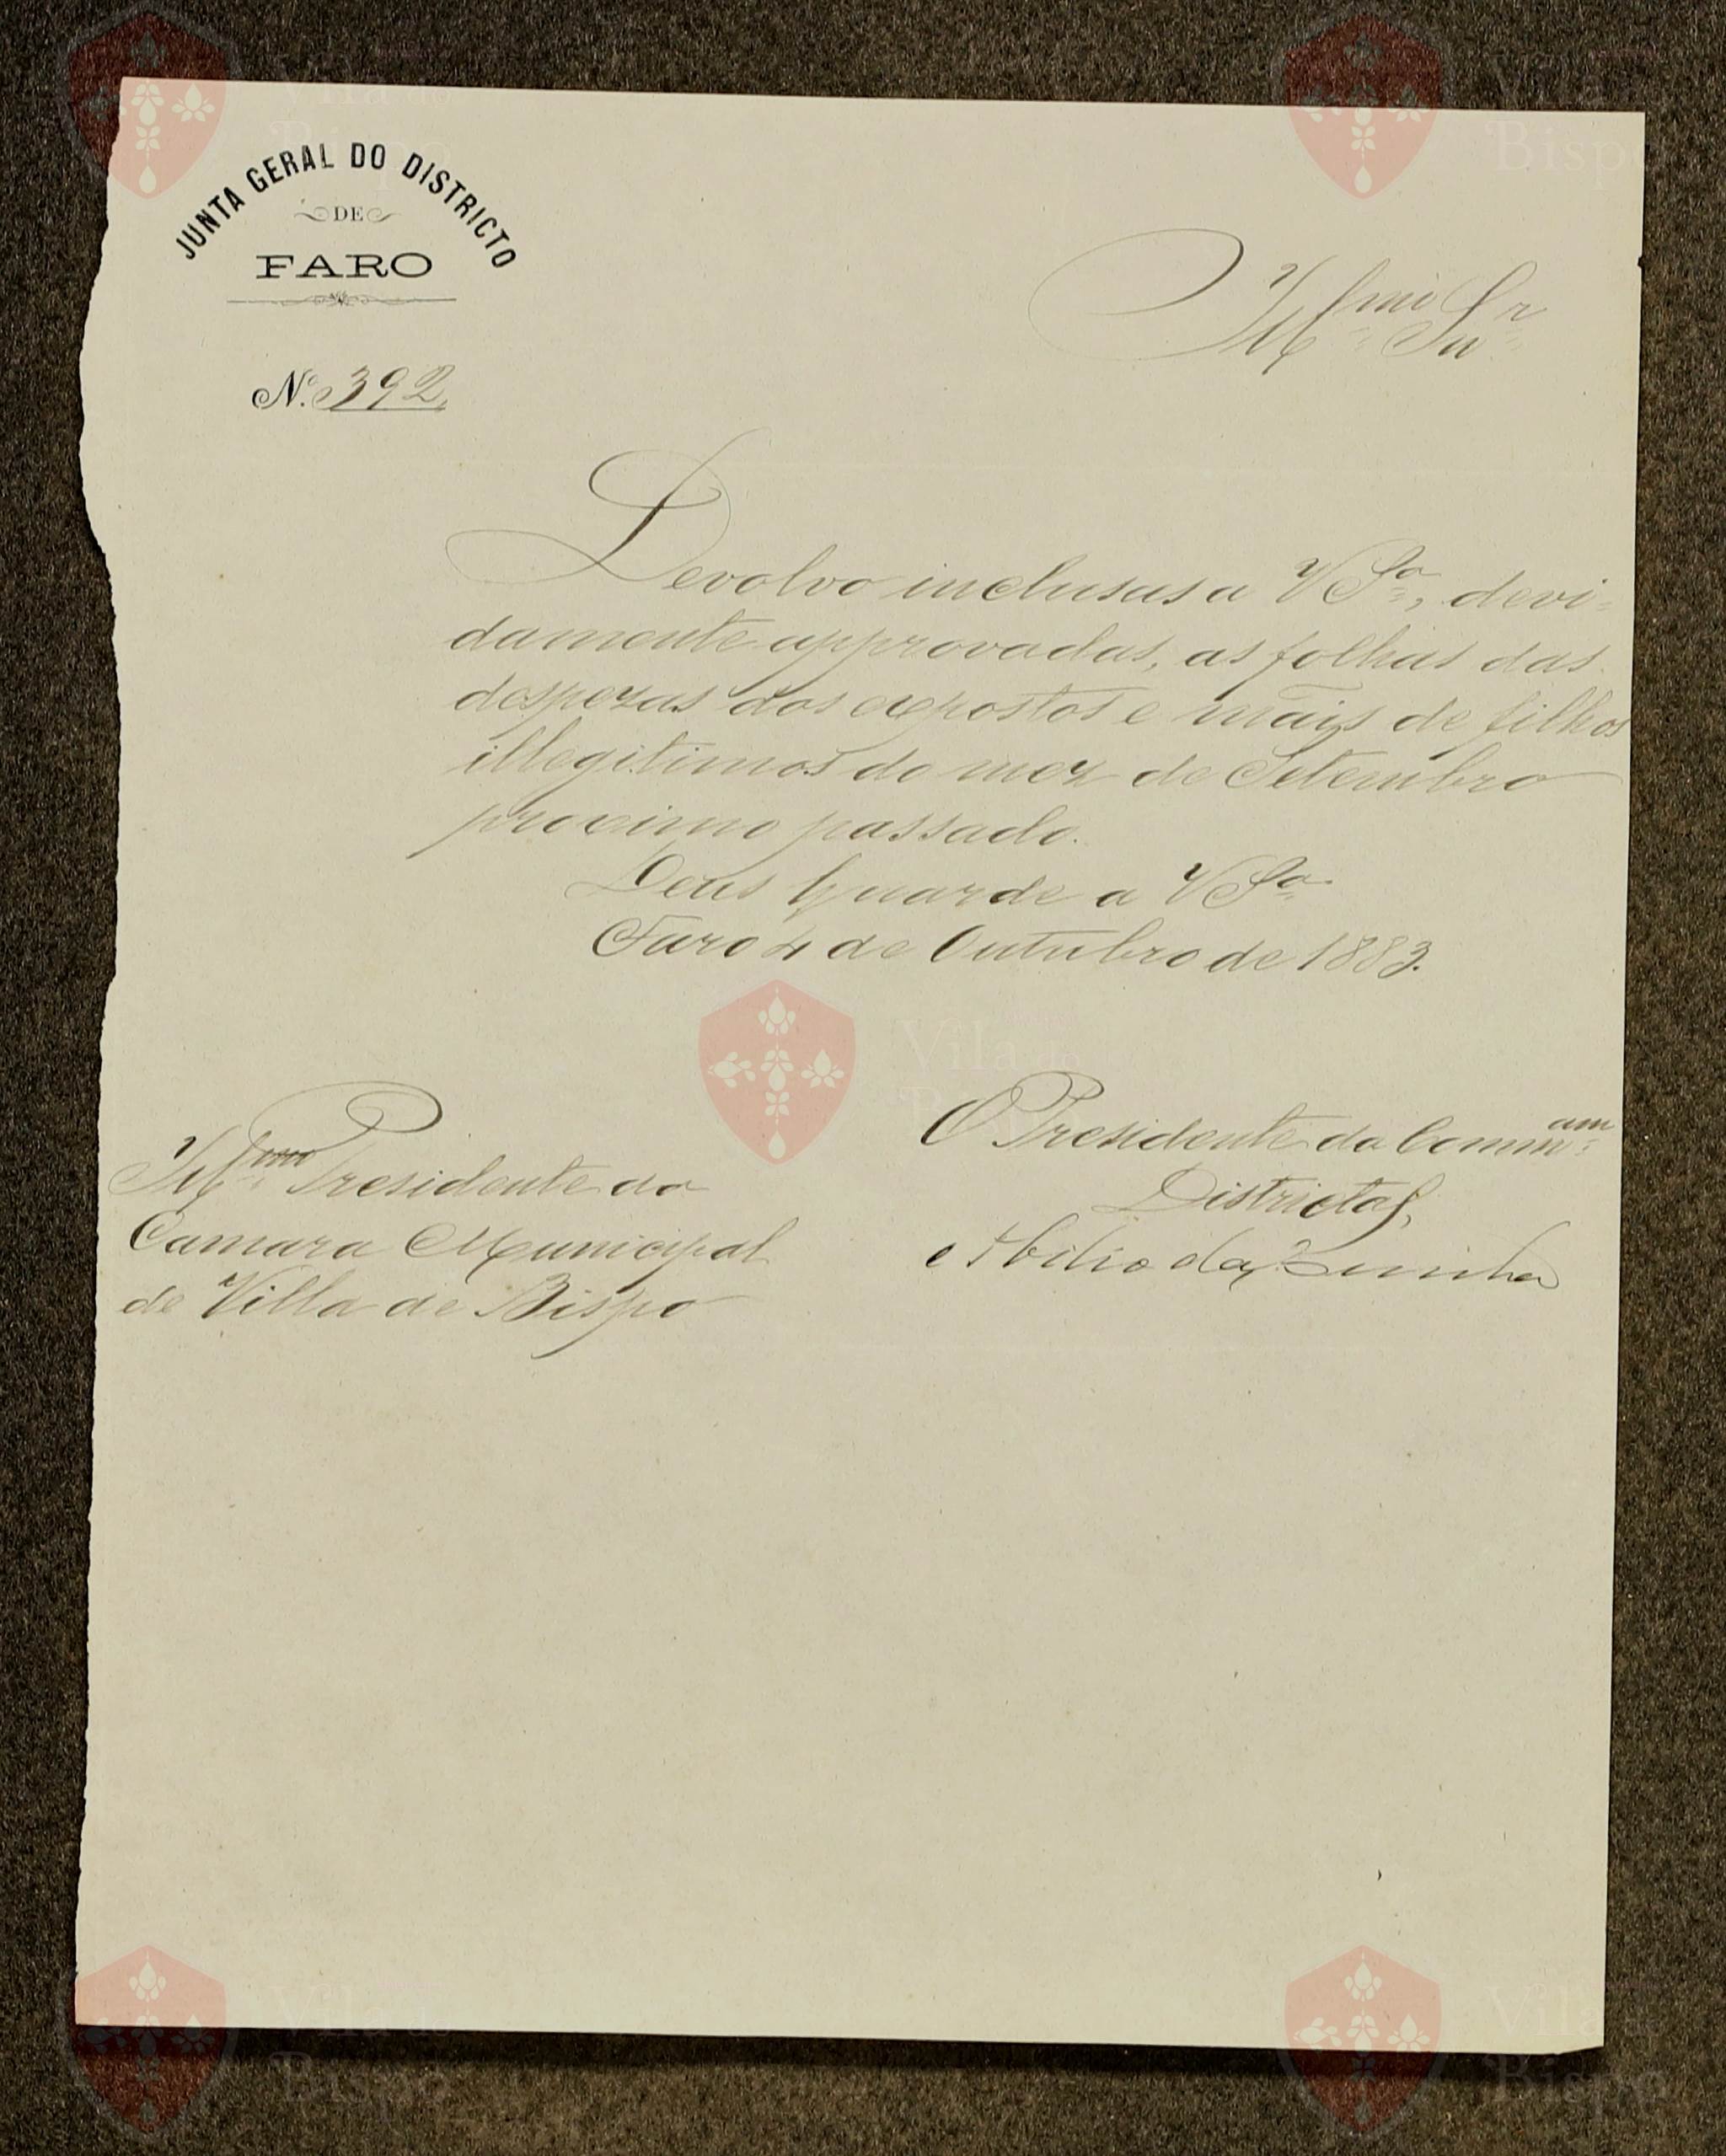 JUNTA GERAL DO DISTRICTO
DE
FARO
N.º 392
Illmo Snr
Devolvo inclusas a V Sa, devi-
damente approvadas, as folhas das
despezas dos expostos e mãis de filhos
illegitimos do mez de Setembro
proximo passado.
Deus Guarde a V Sa
Faro 4 de Outubro de 1883.
O Presidente da Commam
Districtal,
Abilio da Cunha
Illmo Presidente da
Camara Municipal
de Villa de Bispo
Vila do
Bispo